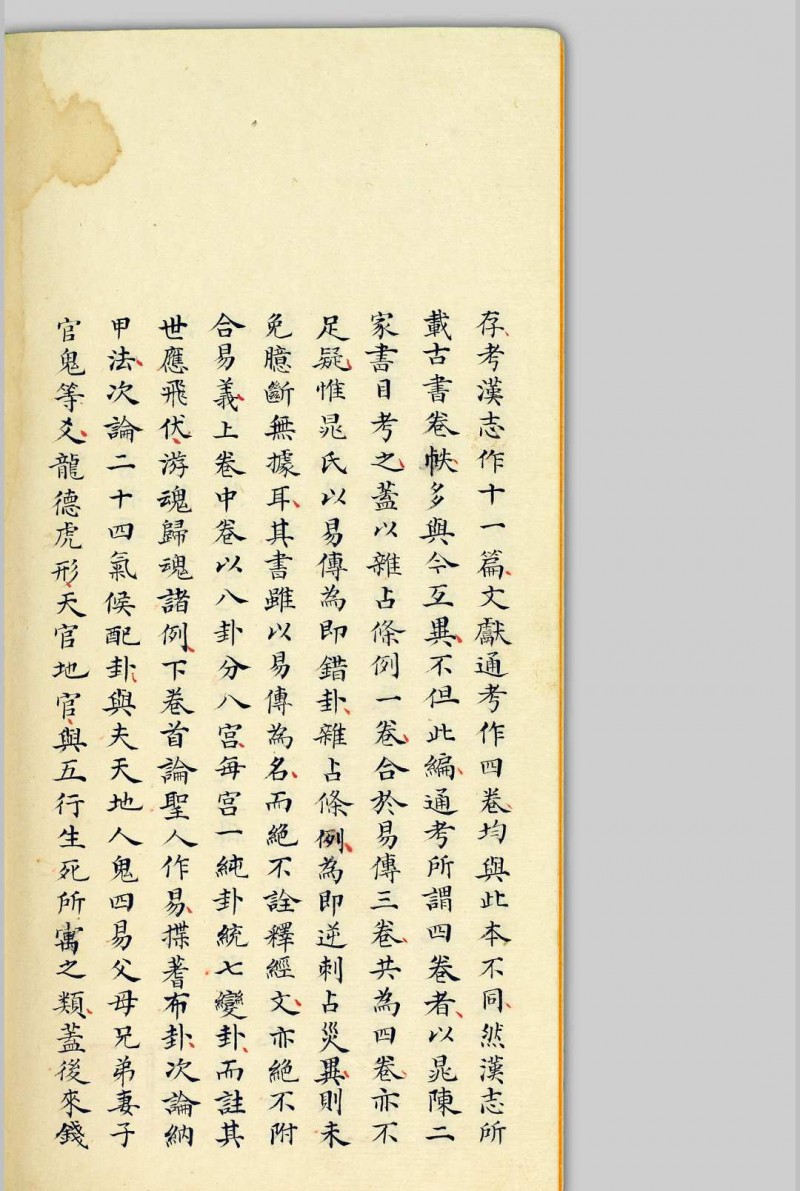 存考漢志作十一篇文獻通考作四卷均與此本不同然漢志所
載古書卷帙多與今互異不但此編通考所謂四卷者以晁陳二
家書目考之蓋以雜占條例一卷合於易傳三卷共為四卷亦不
足疑惟晁氏以易傳為即錯卦雜占條例為即逆刺占災異則未
免臆斷無據耳其書雖以易傳為名而絕不詮釋經文亦絕不附
合易義上卷中卷以八卦分八宮每宮一純卦統七變卦而註其
世應飛伏游魂歸魂諸例下卷首論聖人作易揲蓍布卦次論納
甲法次論二十四氣候配卦與夫天地人鬼四易父母兄弟妻子
官鬼等爻龍德虎形天官地官與五行生死所寓之類蓋後來錢